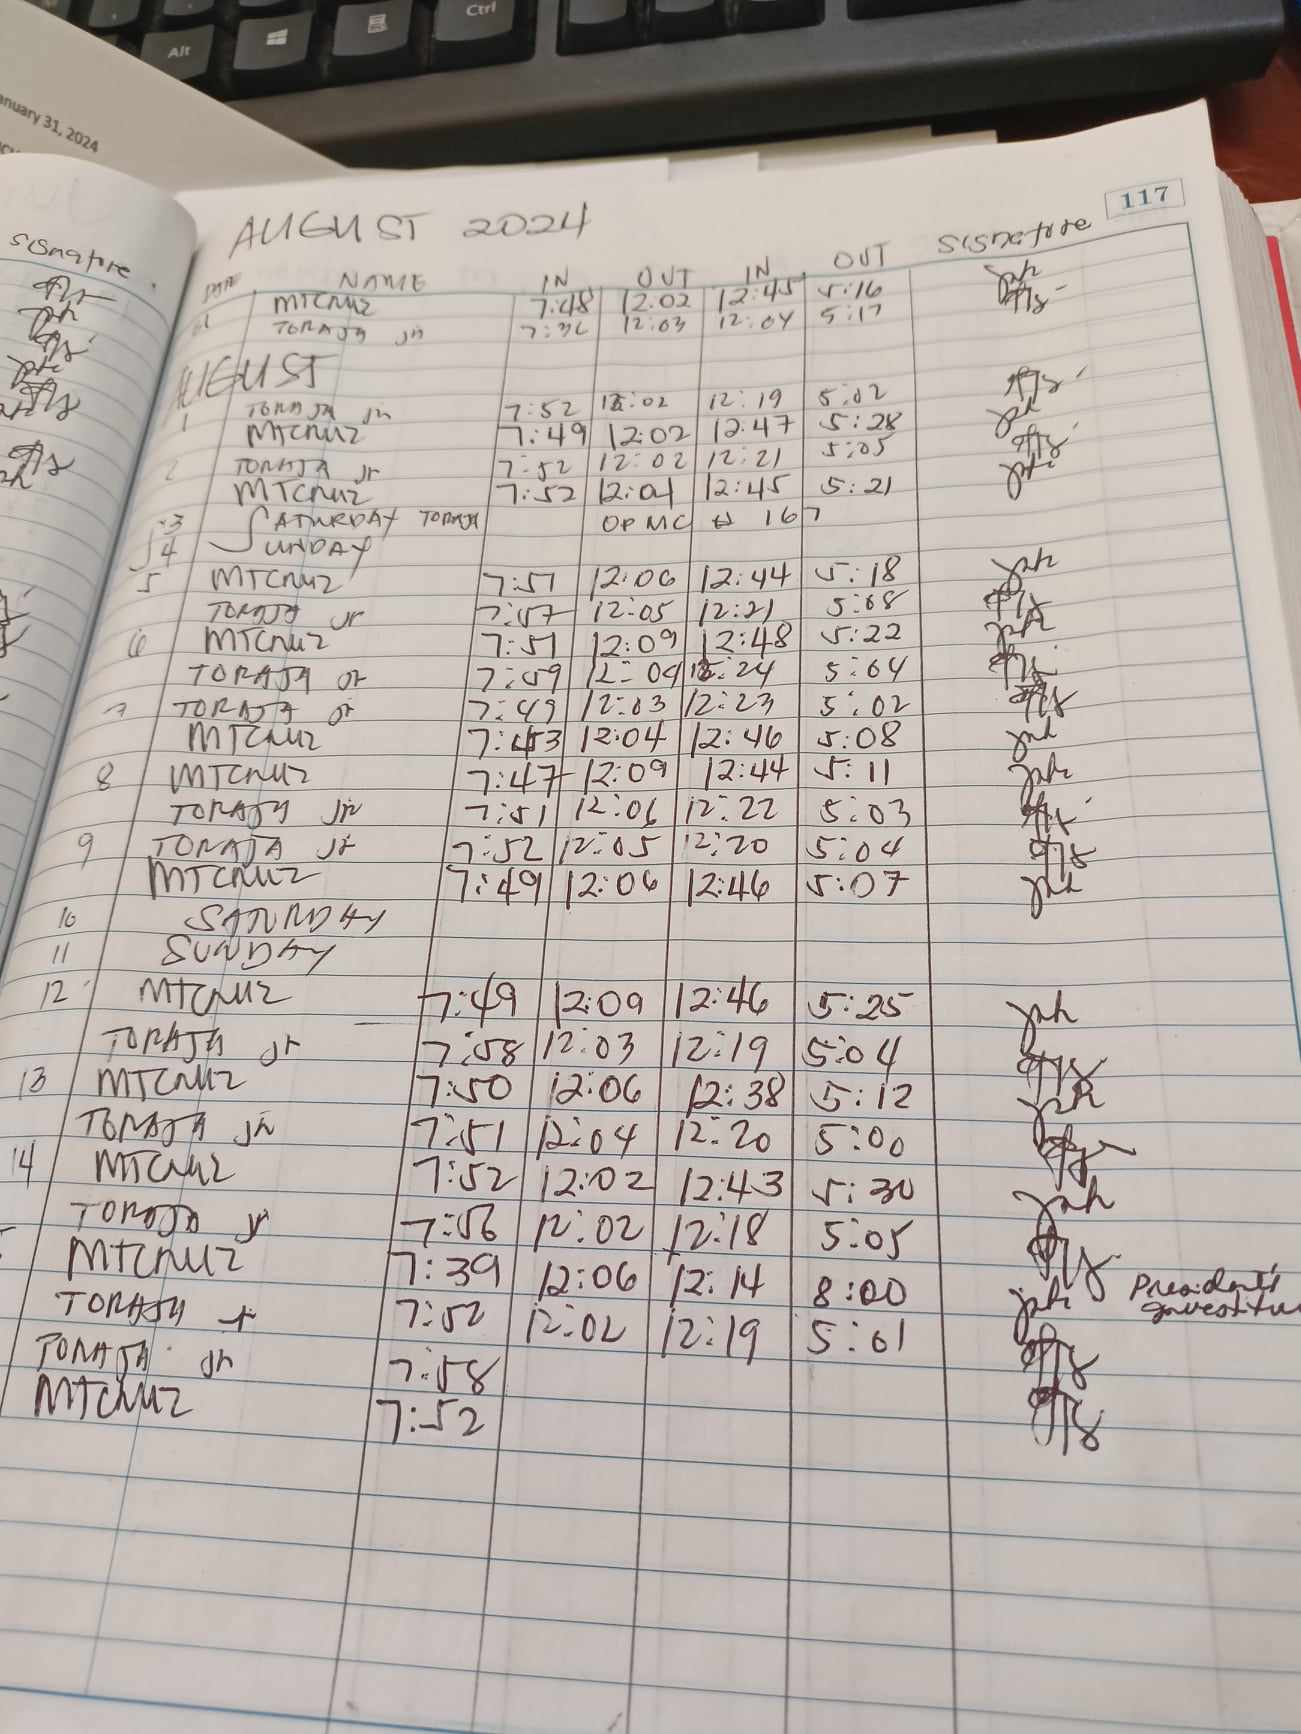 Alt
Ctrl
anuary 31, 2024
117
AUGUST 2024
Signature
DATE NAME IN OUT IN OUT Signature
MTCRUZ 7:48 12:02 12:45 5:16
TORAJA Jr 7:36 12:03 12:04 5:17
AUGUST
1 TORAJA Jr 7:52 12:02 12:19 5:02
MTCRUZ 7:49 12:02 12:47 5:28
2 TORAJA Jr 7:52 12:02 12:21 5:05
MTCRUZ 7:52 12:01 12:45 5:21
3 SATURDAY TORAJA OPMC # 167
4 SUNDAY
5 MTCRUZ 7:51 12:06 12:44 5:18
TORAJA Jr 7:57 12:05 12:21 5:08
6 MTCRUZ 7:51 12:09 12:48 5:22
TORAJA Jr 7:59 12:04 12:24 5:04
7 TORAJA Jr 7:49 12:03 12:23 5:02
MTCRUZ 7:43 12:04 12:46 5:08
8 MTCRUZ 7:47 12:09 12:44 5:11
TORAJA Jr 7:51 12:06 12:22 5:03
9 TORAJA Jr 7:52 12:05 12:20 5:04
MTCRUZ 7:49 12:06 12:46 5:07
10 SATURDAY
11 SUNDAY
12 MTCRUZ 7:49 12:09 12:46 5:25
TORAJA Jr 7:58 12:03 12:19 5:04
13 MTCRUZ 7:50 12:06 12:38 5:12
TORAJA Jr 7:51 12:04 12:20 5:00
14 MTCRUZ 7:52 12:02 12:43 5:30
TORAJA Jr 7:56 12:02 12:18 5:05
MTCRUZ 7:39 12:06 12:14 8:00 President's
TORAJA Jr 7:52 12:02 12:19 5:01
TORAJA Jr 7:58
MTCRUZ 7:52